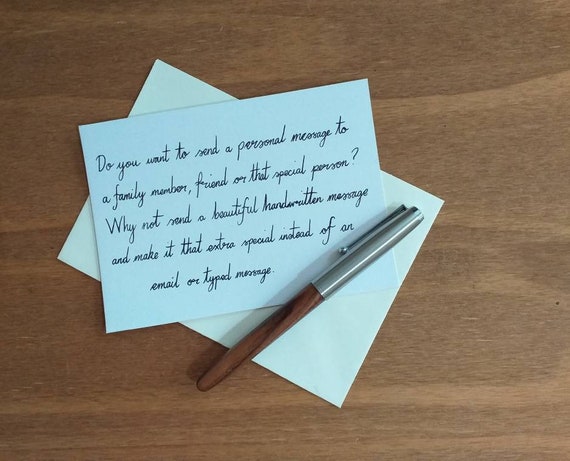 Do you want to send a personal message to
a family member, friend or that special person?
Why not send a beautiful handwritten message
and make it that extra special instead of an
email or typed message.